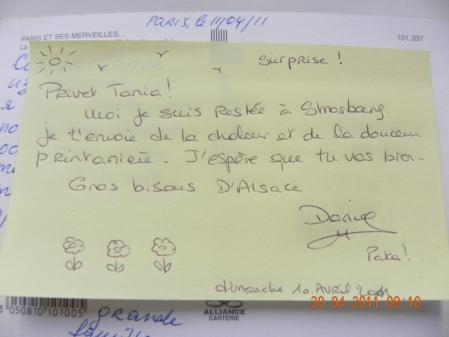 PARIS, le 11/04/11
PARIS ET SES MERVEILLES...
101.337
Surprise !
Privet Tania !
Moi je suis restée à Strasbourg.
Je t'envoie de la chaleur et de la douceur
printanière. J'espère que tu vas bien.
Gros bisous D'Alsace
Paka !
dimanche 10 Avril 2011
30-04-2011 09:18
3 050810 101005
ALLIANCE
CARTERIE
grande